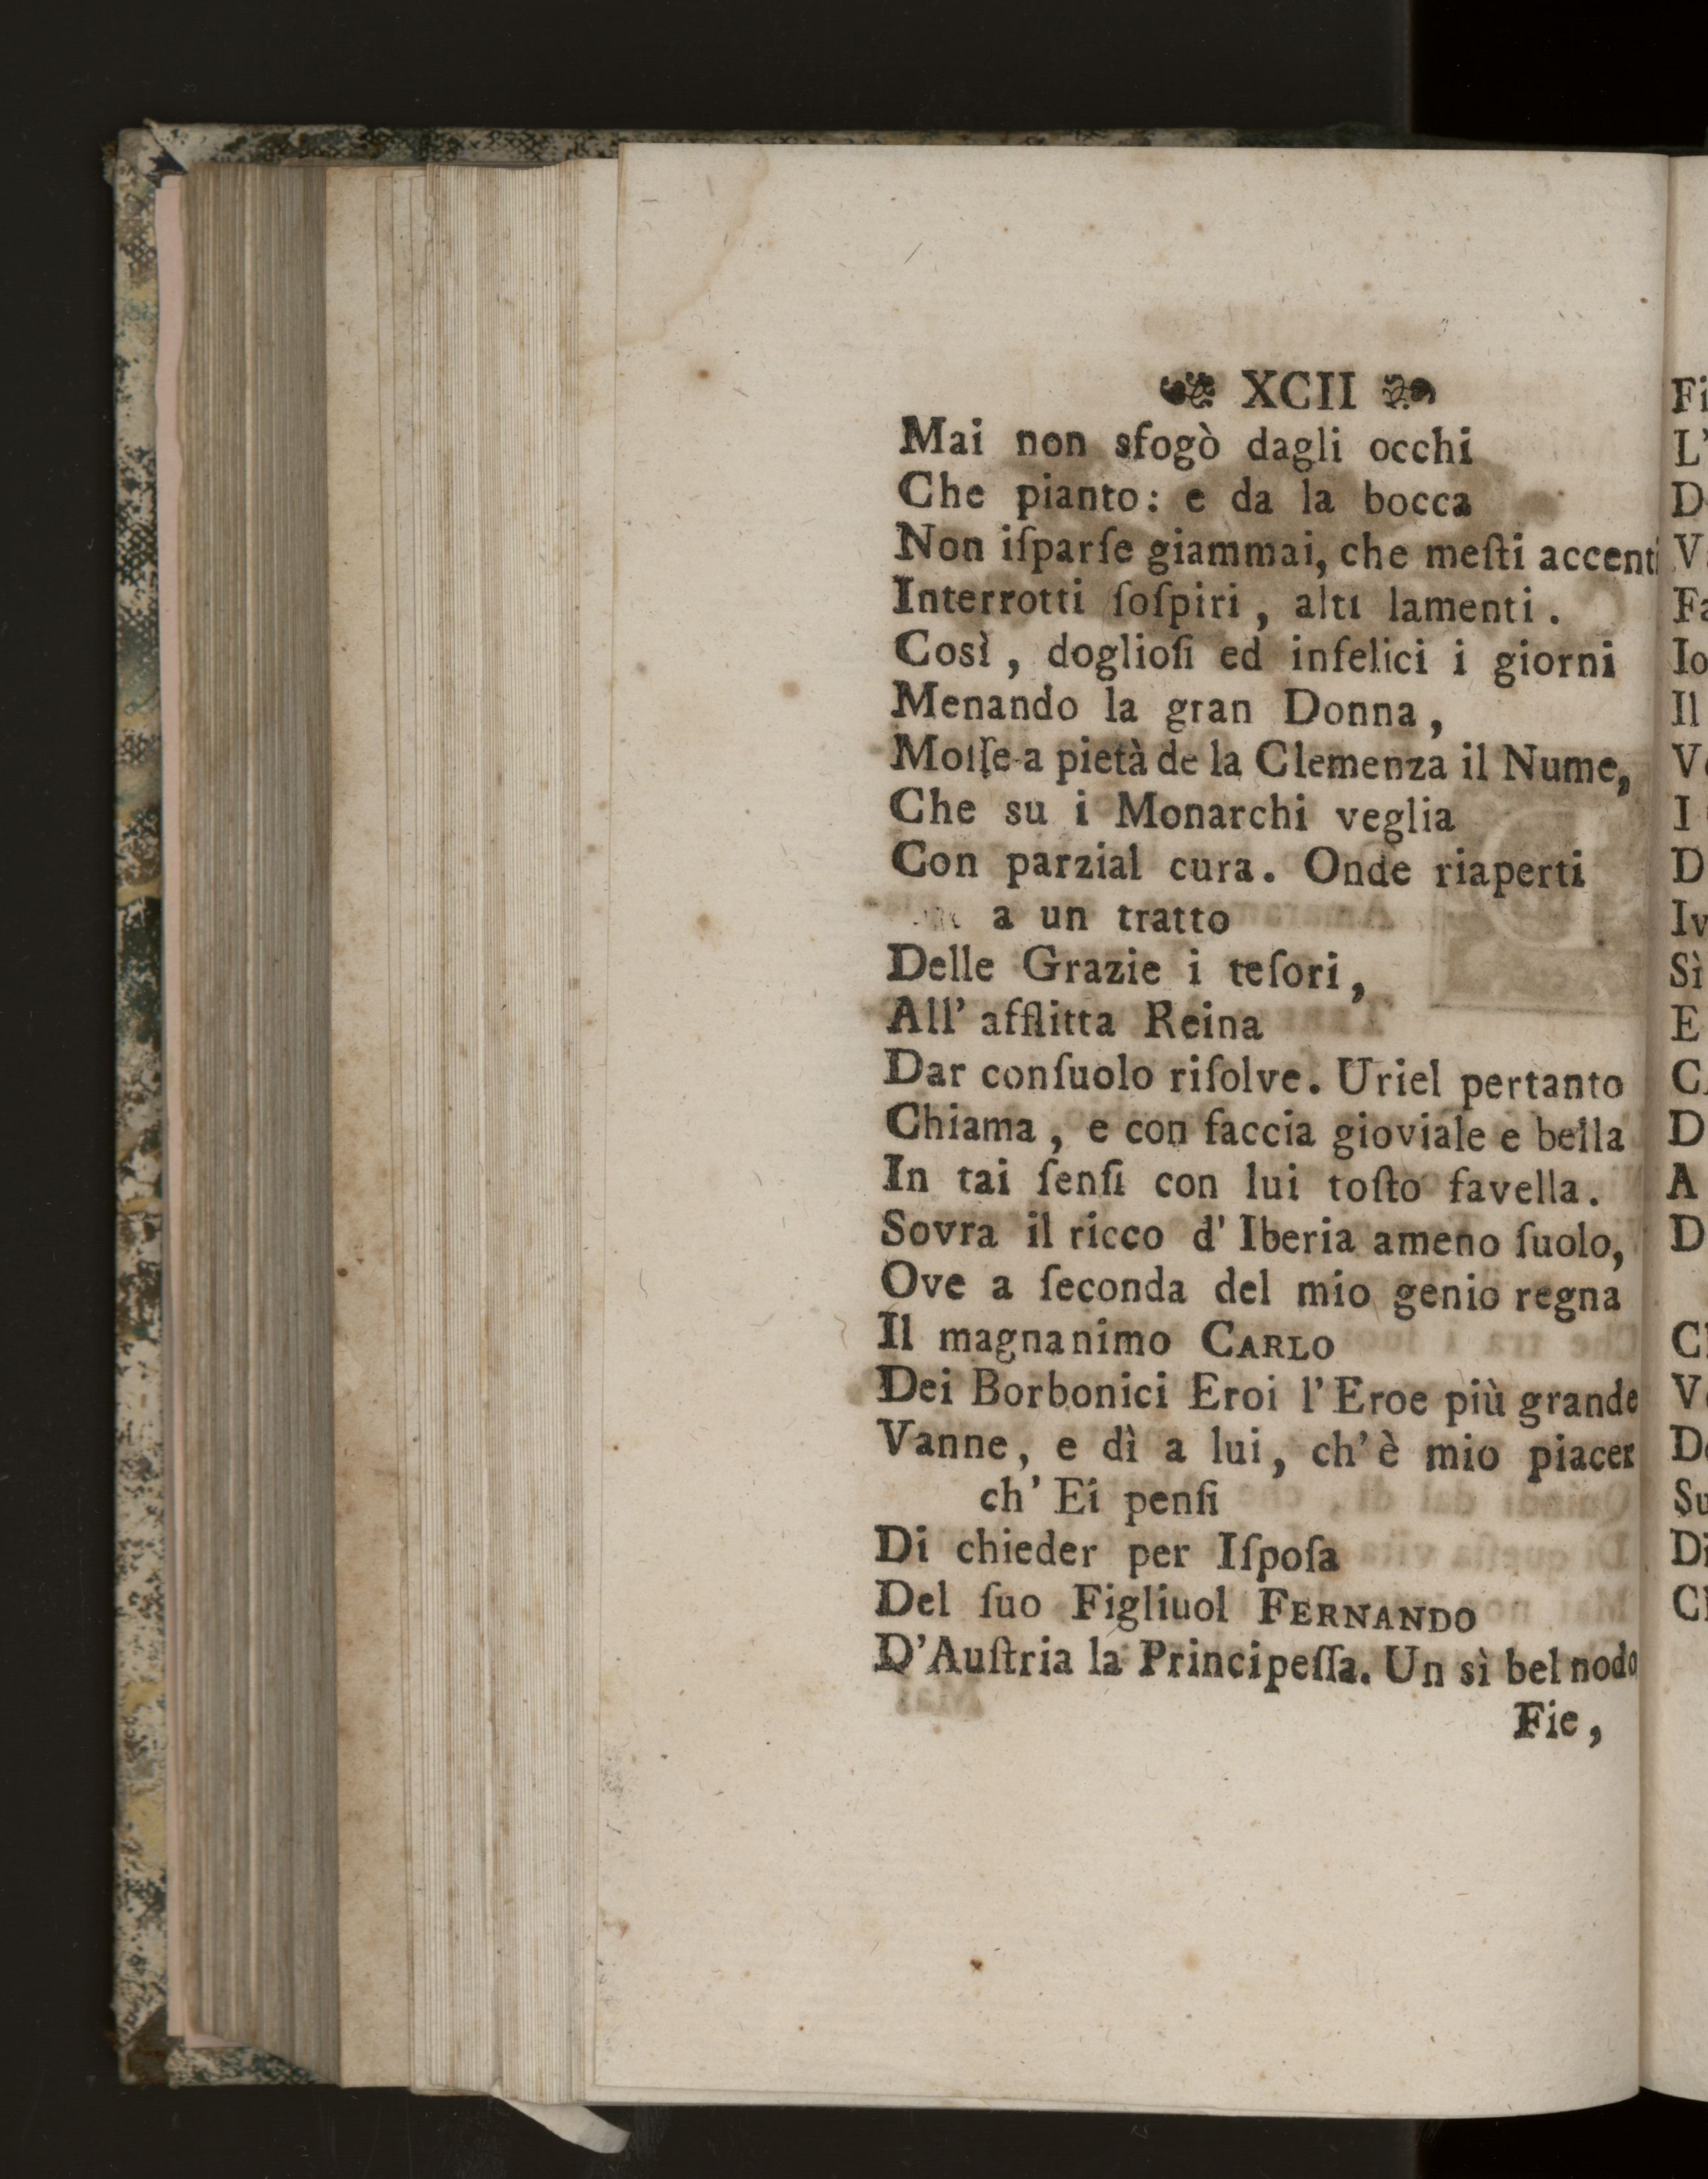 XCII
Mai non sfogò dagli occhi
Che pianto: e da la bocca
Non iſparſe giammai, che meſti accenti
Interrotti ſoſpiri, alti lamenti.
Così, doglioſi ed infelici i giorni
Menando la gran Donna,
Moſſe a pietà de la Clemenza il Nume,
Che su i Monarchi veglia
Con parzial cura. Onde riaperti
a un tratto
Delle Grazie i teſori,
All' afflitta Reina
Dar conſuolo riſolve. Uriel pertanto
Chiama, e con faccia gioviale e bella
In tai ſenſi con lui toſto favella.
Sovra il ricco d' Iberia ameno ſuolo,
Ove a ſeconda del mio genio regna
Il magnanimo CARLO
Dei Borbonici Eroi l'Eroe più grande
Vanne, e dì a lui, ch'è mio piacer
ch' Ei penſi
Di chieder per Iſpoſa
Del ſuo Figliuol FERNANDO
D'Auſtria la Principeſſa. Un sì bel nodo
Fie,